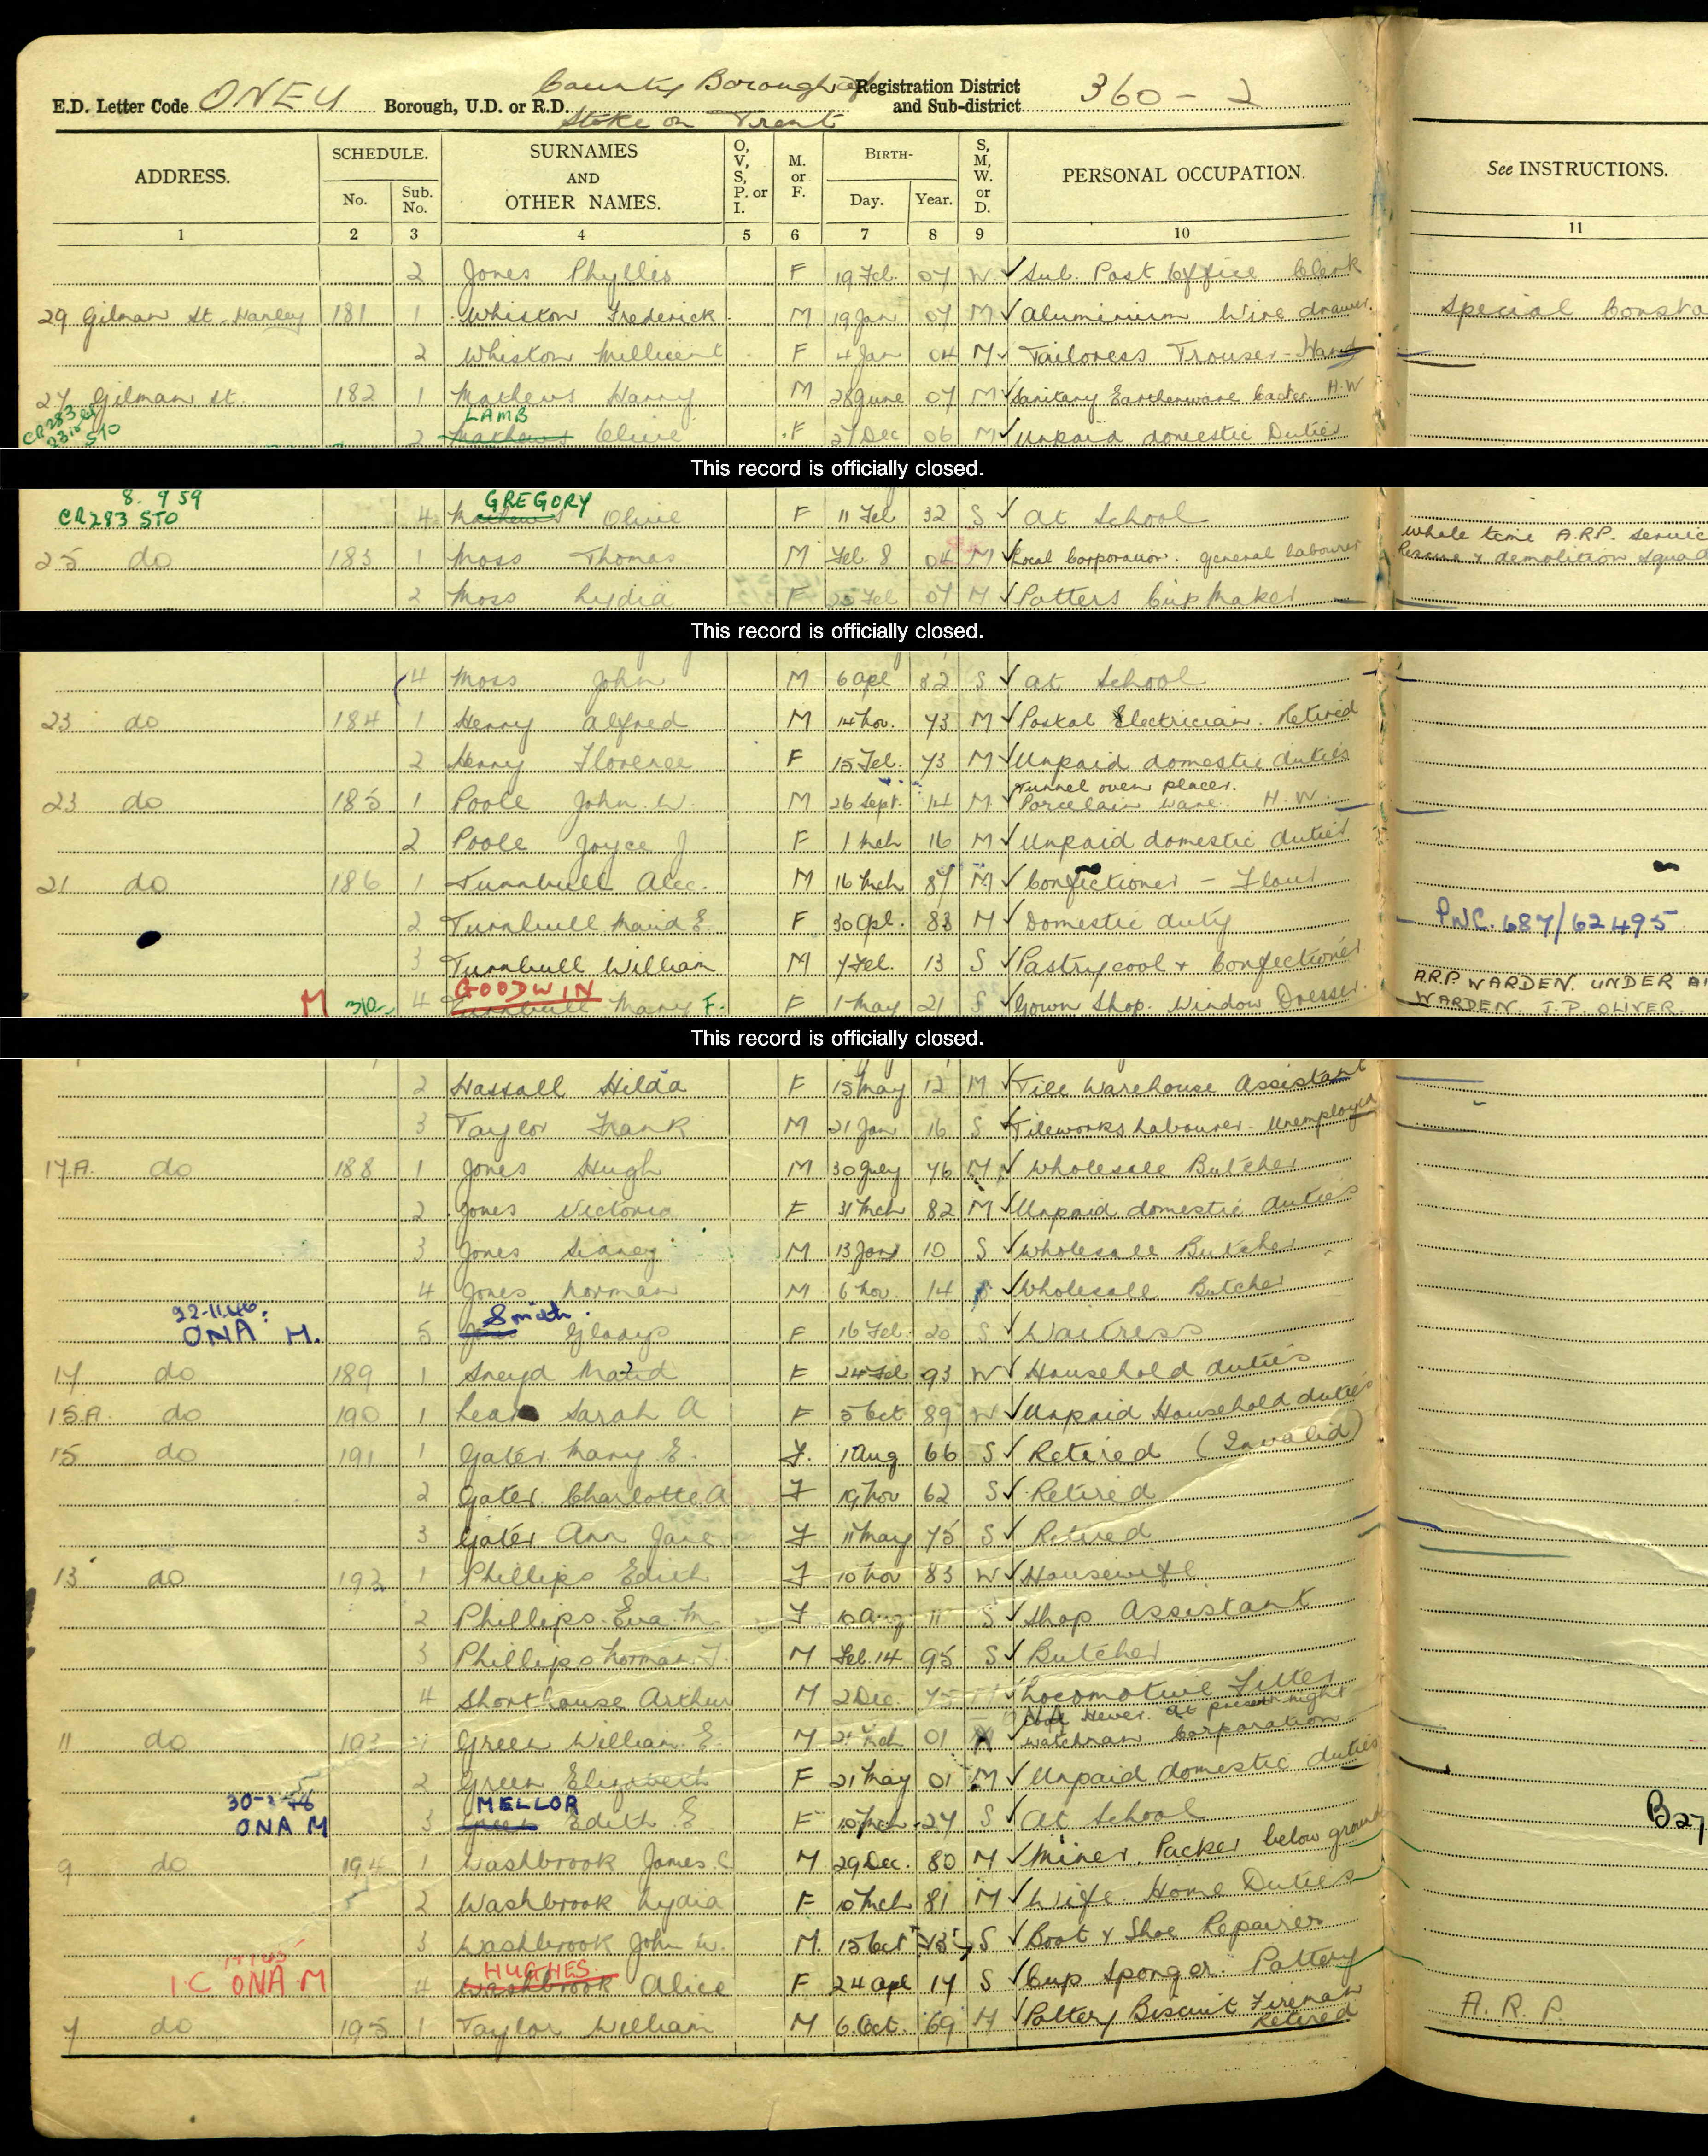 E.D. Letter Code ONEU Borough, U.D. or R.D. County Borough of Stoke on Trent Registration District and Sub-district 360-2
ADDRESS. SCHEDULE. No. Sub. No. SURNAMES AND OTHER NAMES. O, V, S, P. or I. M. or F. BIRTH- Day. Year. S, M, W. or D. PERSONAL OCCUPATION. See INSTRUCTIONS.
1 2 3 4 5 6 7 8 9 10 11
2 Jones Phyllis F 19 Feb 07 W Sub. Post Office Clerk
29 Gilman St. Hanley 181 1 Whiston Frederick M 19 Jan 07 M Aluminium Wire drawer. Special Consta
2 Whiston Millicent F 4 Jan 04 M Tailoress Trouser-Hand
27 Gilman St. 182 1 Mathews Harry M 28 June 07 M Sanitary Earthenware Caster H.W
CR283 STO LAMB
2 Mathews Olive F 27 Dec 06 M Unpaid domestic Duties
This record is officially closed.
8. 9 59 GREGORY
CR283 STO 4 Mathews Olive F 11 Feb 32 S At School
25 do 183 1 Moss Thomas M Feb 8 04 M Local Corporation. General labourer Whole time A.R.P. servic Rescue & demolition squad
2 Moss Lydia F Feb 07 M Potters Cup Maker
This record is officially closed.
4 Moss John M 6 Apl 32 S At School
23 do 184 1 Henry Alfred M 14 Nov. 73 M Postal Electrician. Retired
2 Henry Florence F 15 Feb. 73 M Unpaid domestic duties
23 do 185 1 Poole John W. M 26 Sept. 14 M Tunnel oven placer. Porcelain Ware. H.W.
2 Poole Joyce J F 1 Mch 16 M Unpaid domestic duties
21 do 186 1 Turnbull Alec. M 16 Mch 87 M Confictioner - Flour
2 Turnbull Maud E. F 30 Apl. 83 M Domestic duty PNC. 687/62495
3 Turnbull William M 7 Feb. 13 S Pastrycool + Confectioner A.R.P WARDEN. UNDER
GOODWIN
M 4 Turnbull Mary F. F 1 May 21 S Gown Shop. Window Dresser. WARDEN. J.P. OLIVER.
This record is officially closed.
2 Hassall Hilda F 15 May 12 M Tile Warehouse Assistant
3 Taylor Frank M 21 Jan 16 S Tileworks Labourer - Unemployed
17.A. do 188 1 Jones Hugh M 30 76 M Wholesale Butcher
2 Jones Victoria F 31 Mch 82 M Unpaid domestic duties
3 Jones Sidney M 13 Jan 10 S Wholesale Butcher
4 Jones Norman M 6 Nov. 14 Wholesale Butcher
22-11.46. Smith.
ONA M. 5 Jones Gladys F 16 Feb 20 S Waitress
17 do 189 1 Sneyd Maud F 24 Feb 93 W Household duties
15.A. do 190 1 Sarah A F 5 Oct 89 W Unpaid Household duties
15 do 191 1 Gater Mary E. F. 1 Aug 66 S Retired (Invalid)
2 Gater. Charlotte A F 19 Nov 62 S Retired
3 Gater Ann Jane F 11 May 75 S Retired
13 do 192 1 Phillips Edith F 10 Nov 83 W Housewife
2 Phillips. Eva M. F 10 Aug 11 S Shop Assistant
3 Phillips Norman M Feb. 14 95 S Butcher
4 Shorthouse Arthur M 2 Dec. 75 Locomotive Fitter
11 do 193 1 Green William E. M 21 Mch 01 at present night watchman Corporation
2 Green Elizabeth F 21 May 01 M Unpaid domestic duties
MELLOR
ONA M 3 Green Edith E F 10 Mch 27 S At School B27
9 do 194 1 Washbrook James C M 29 Dec. 80 M Miner. Packer below ground
2 Washbrook Lydia F 10 Mch 81 M Wife. Home Duties
3 Washbrook John W. M. 15 Oct 13 S Boot & Shoe Repairer
HUGHES
1C ONA M 4 Washbrook Alice F 24 Apl 17 S Cup Sponger. Pottery
7 do 195 1 Taylor William M 6 Oct. 69 M Pottery Biscuit Fireman Retired A.R.P.